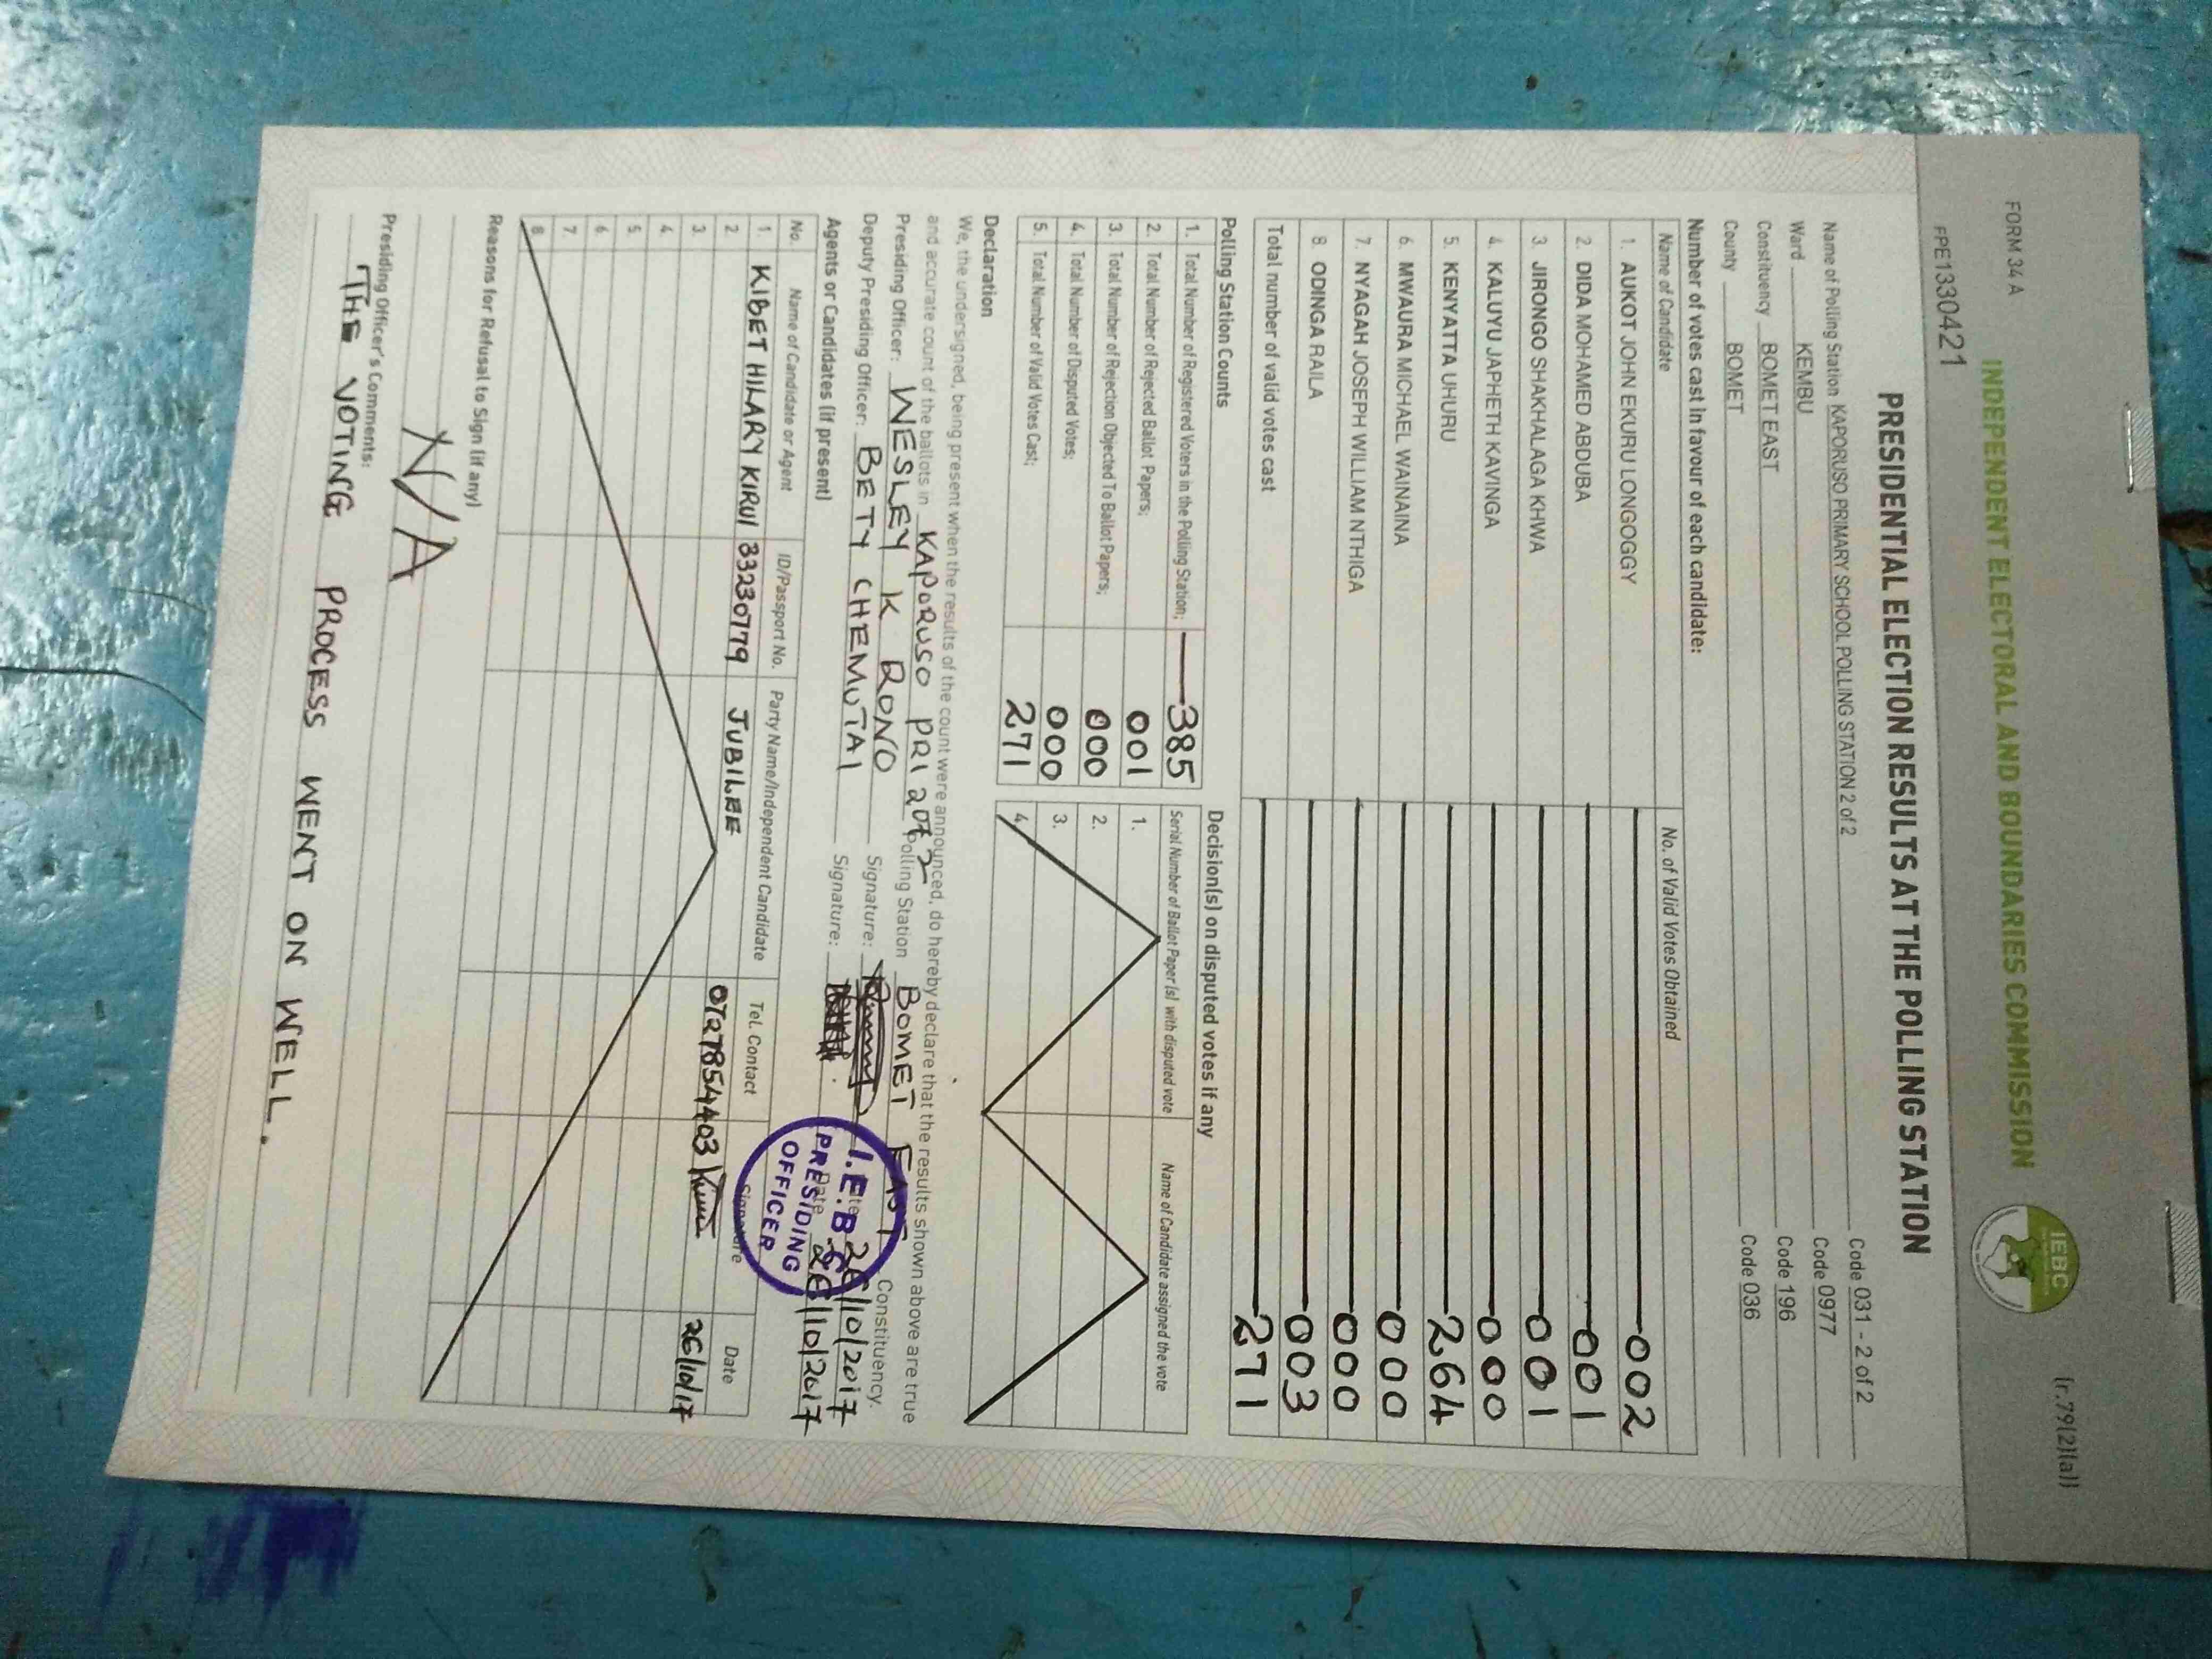 FORM 34 A
(r.79(2)(a))
INDEPENDENT ELECTORAL AND BOUNDARIES COMMISSION
IEBC
FPE1330421
PRESIDENTIAL ELECTION RESULTS AT THE POLLING STATION
Name of Polling Station KAPORUSO PRIMARY SCHOOL POLLING STATION 2 of 2 Code 031 - 2 of 2
Ward KEMBU Code 0977
Constituency BOMET EAST Code 196
County BOMET Code 036
Number of votes cast in favour of each candidate:
Name of Candidate No. of Valid Votes Obtained
1. AUKOT JOHN EKURU LONGOGGY 002
2. DIDA MOHAMED ABDUBA 001
3. JIRONGO SHAKHALAGA KHWA 001
4. KALUYU JAPHETH KAVINGA 000
5. KENYATTA UHURU 264
6. MWAURA MICHAEL WAINAINA 000
7. NYAGAH JOSEPH WILLIAM NTHIGA 000
8. ODINGA RAILA 003
Total number of valid votes cast 271
Polling Station Counts
1. Total Number of Registered Voters in the Polling Station; 385
2. Total Number of Rejected Ballot Papers; 001
3. Total Number of Rejection Objected To Ballot Papers; 000
4. Total Number of Disputed Votes; 000
5. Total Number of Valid Votes Cast; 271
Decision(s) on disputed votes if any
Serial Number of Ballot Paper (s) with disputed vote Name of Candidate assigned the vote
1.
2.
3.
4.
Declaration
We, the undersigned, being present when the results of the count were announced, do hereby declare that the results shown above are true
and accurate count of the ballots in KAPORUSO PRI 2 of 2 Polling Station BOMET EAST Constituency.
Presiding Officer: WESLEY K RONO Signature: Date 26/10/2017
Deputy Presiding Officer: BETY CHEMUTAI Signature: Date 26/10/2017
I.E.B.C
PRESIDING
OFFICER
Agents or Candidates (if present)
No. Name of Candidate or Agent ID/Passport No. Party Name/Independent Candidate Tel. Contact Signature Date
1. KIBET HILARY KIRUI 33230779 JUBILEE 0727854403 26/10/17
2.
3.
4.
5.
6.
7.
8.
Reasons for Refusal to Sign (if any)
N/A
Presiding Officer's Comments:
THE VOTING PROCESS WENT ON WELL.